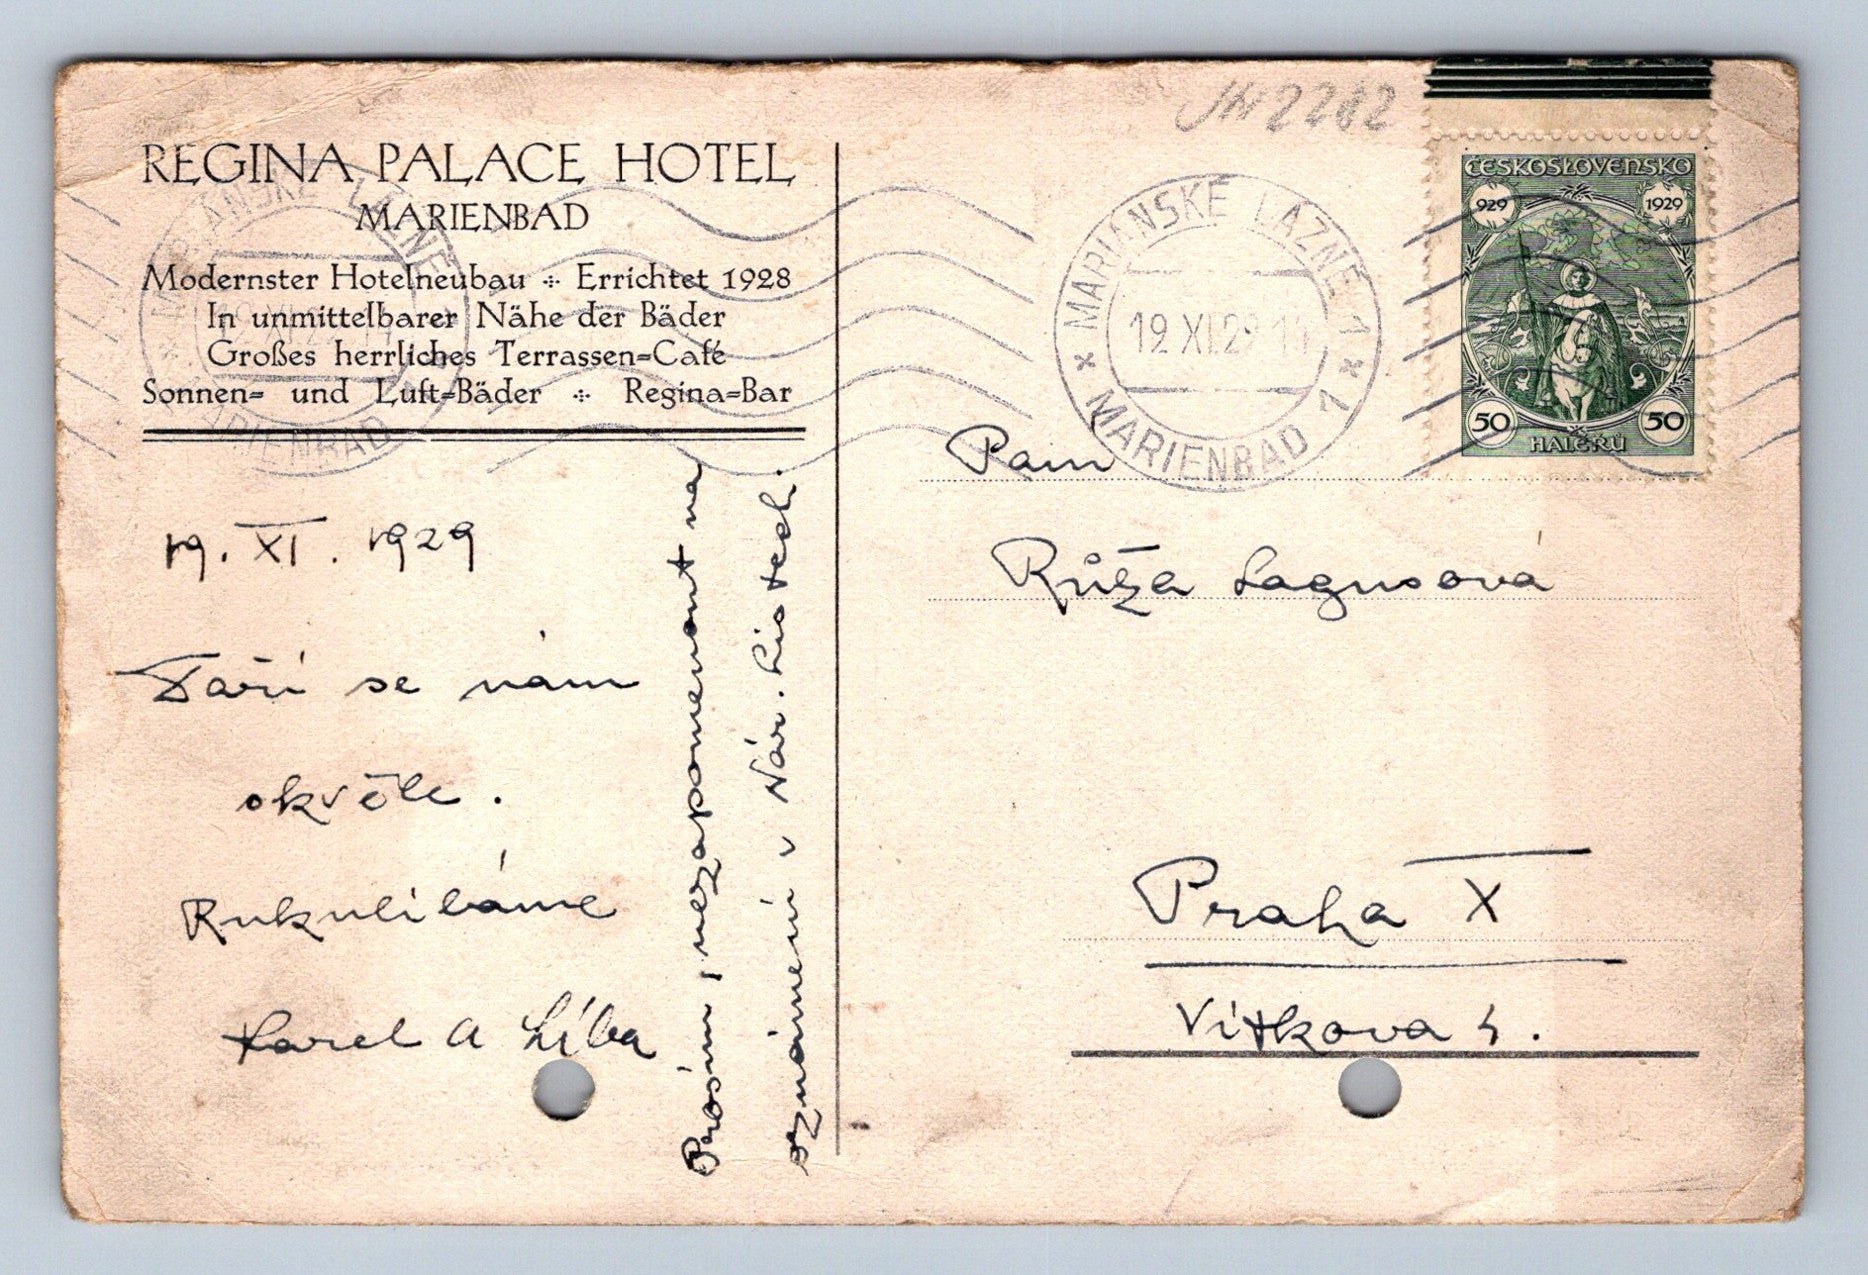 REGINA PALACE HOTEL
MARIENBAD
Modernster Hotelneubau ⁘ Errichtet 1928
In unmittelbarer Nähe der Bäder
Großes herrliches Terrassen=Café
Sonnen= und Luft=Bäder ⁘ Regina=Bar
19. XI. 1929
Daří se nám
skvěle.
Rukulíbáme
Karel a Líba
Prosím, nezapomenout na
oznámení v Nár. Listech.
2282
MARIÁNSKÉ LÁZNĚ 1
19 XI. 29
MARIENBAD
MARIÁNSKÉ LÁZNĚ
MARIENBAD
ČESKOSLOVENSKO
929 1929
50 50
HALÉŘŮ
Paní
Růža Lagusová
Praha X
Vítkova 4.